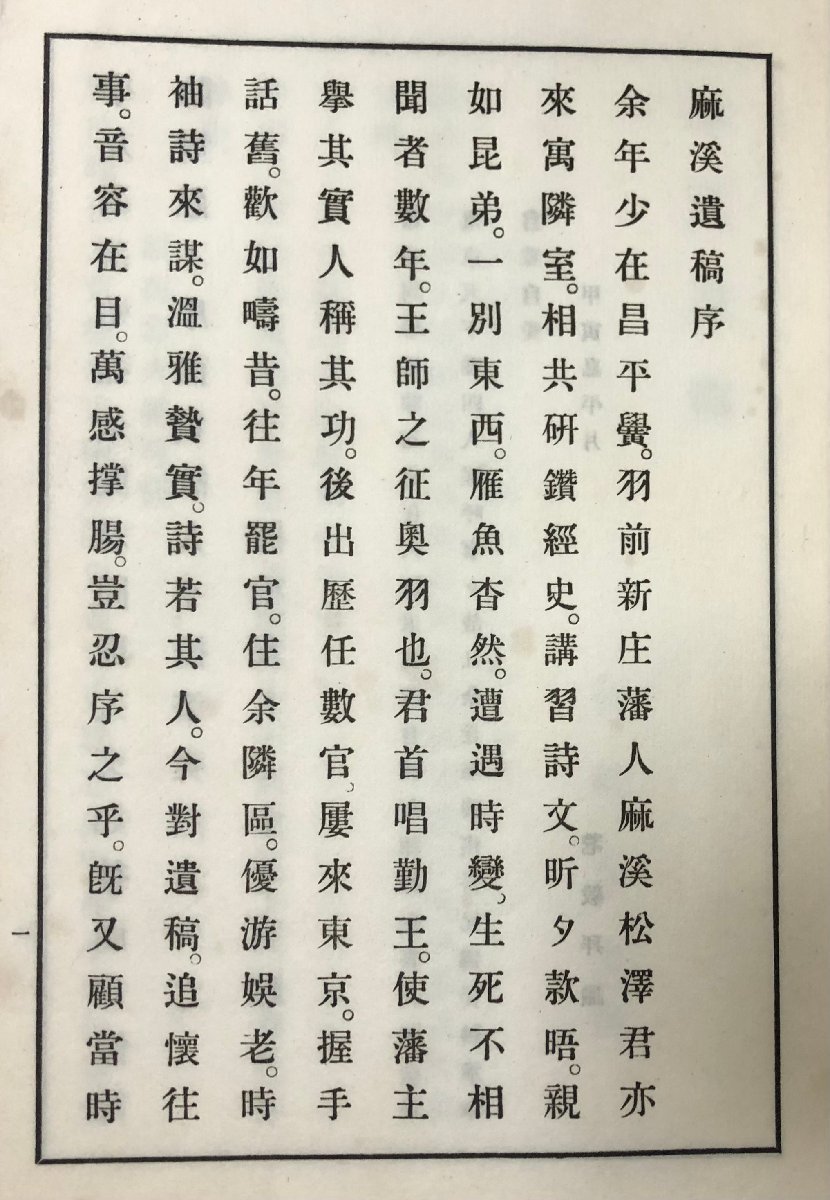 麻溪遺稿序
余年少在昌平黌。羽前新庄藩人麻溪松澤君亦
來寓隣室。相共硏鑽經史。講習詩文。昕夕款晤。親
如昆弟。一別東西。雁魚杳然。遭遇時變、生死不相
聞者數年。王師之征奧羽也。君首唱勤王。使藩主
擧其實人稱其功。後出歷任數官、屢來東京。握手
話舊。歡如疇昔。往年罷官。住余隣區。優游娛老。時
袖詩來謀。溫雅贄實。詩若其人。今對遺稿。追懷往
事。音容在目。萬感撑腸。豈忍序之乎。旣又顧當時
一